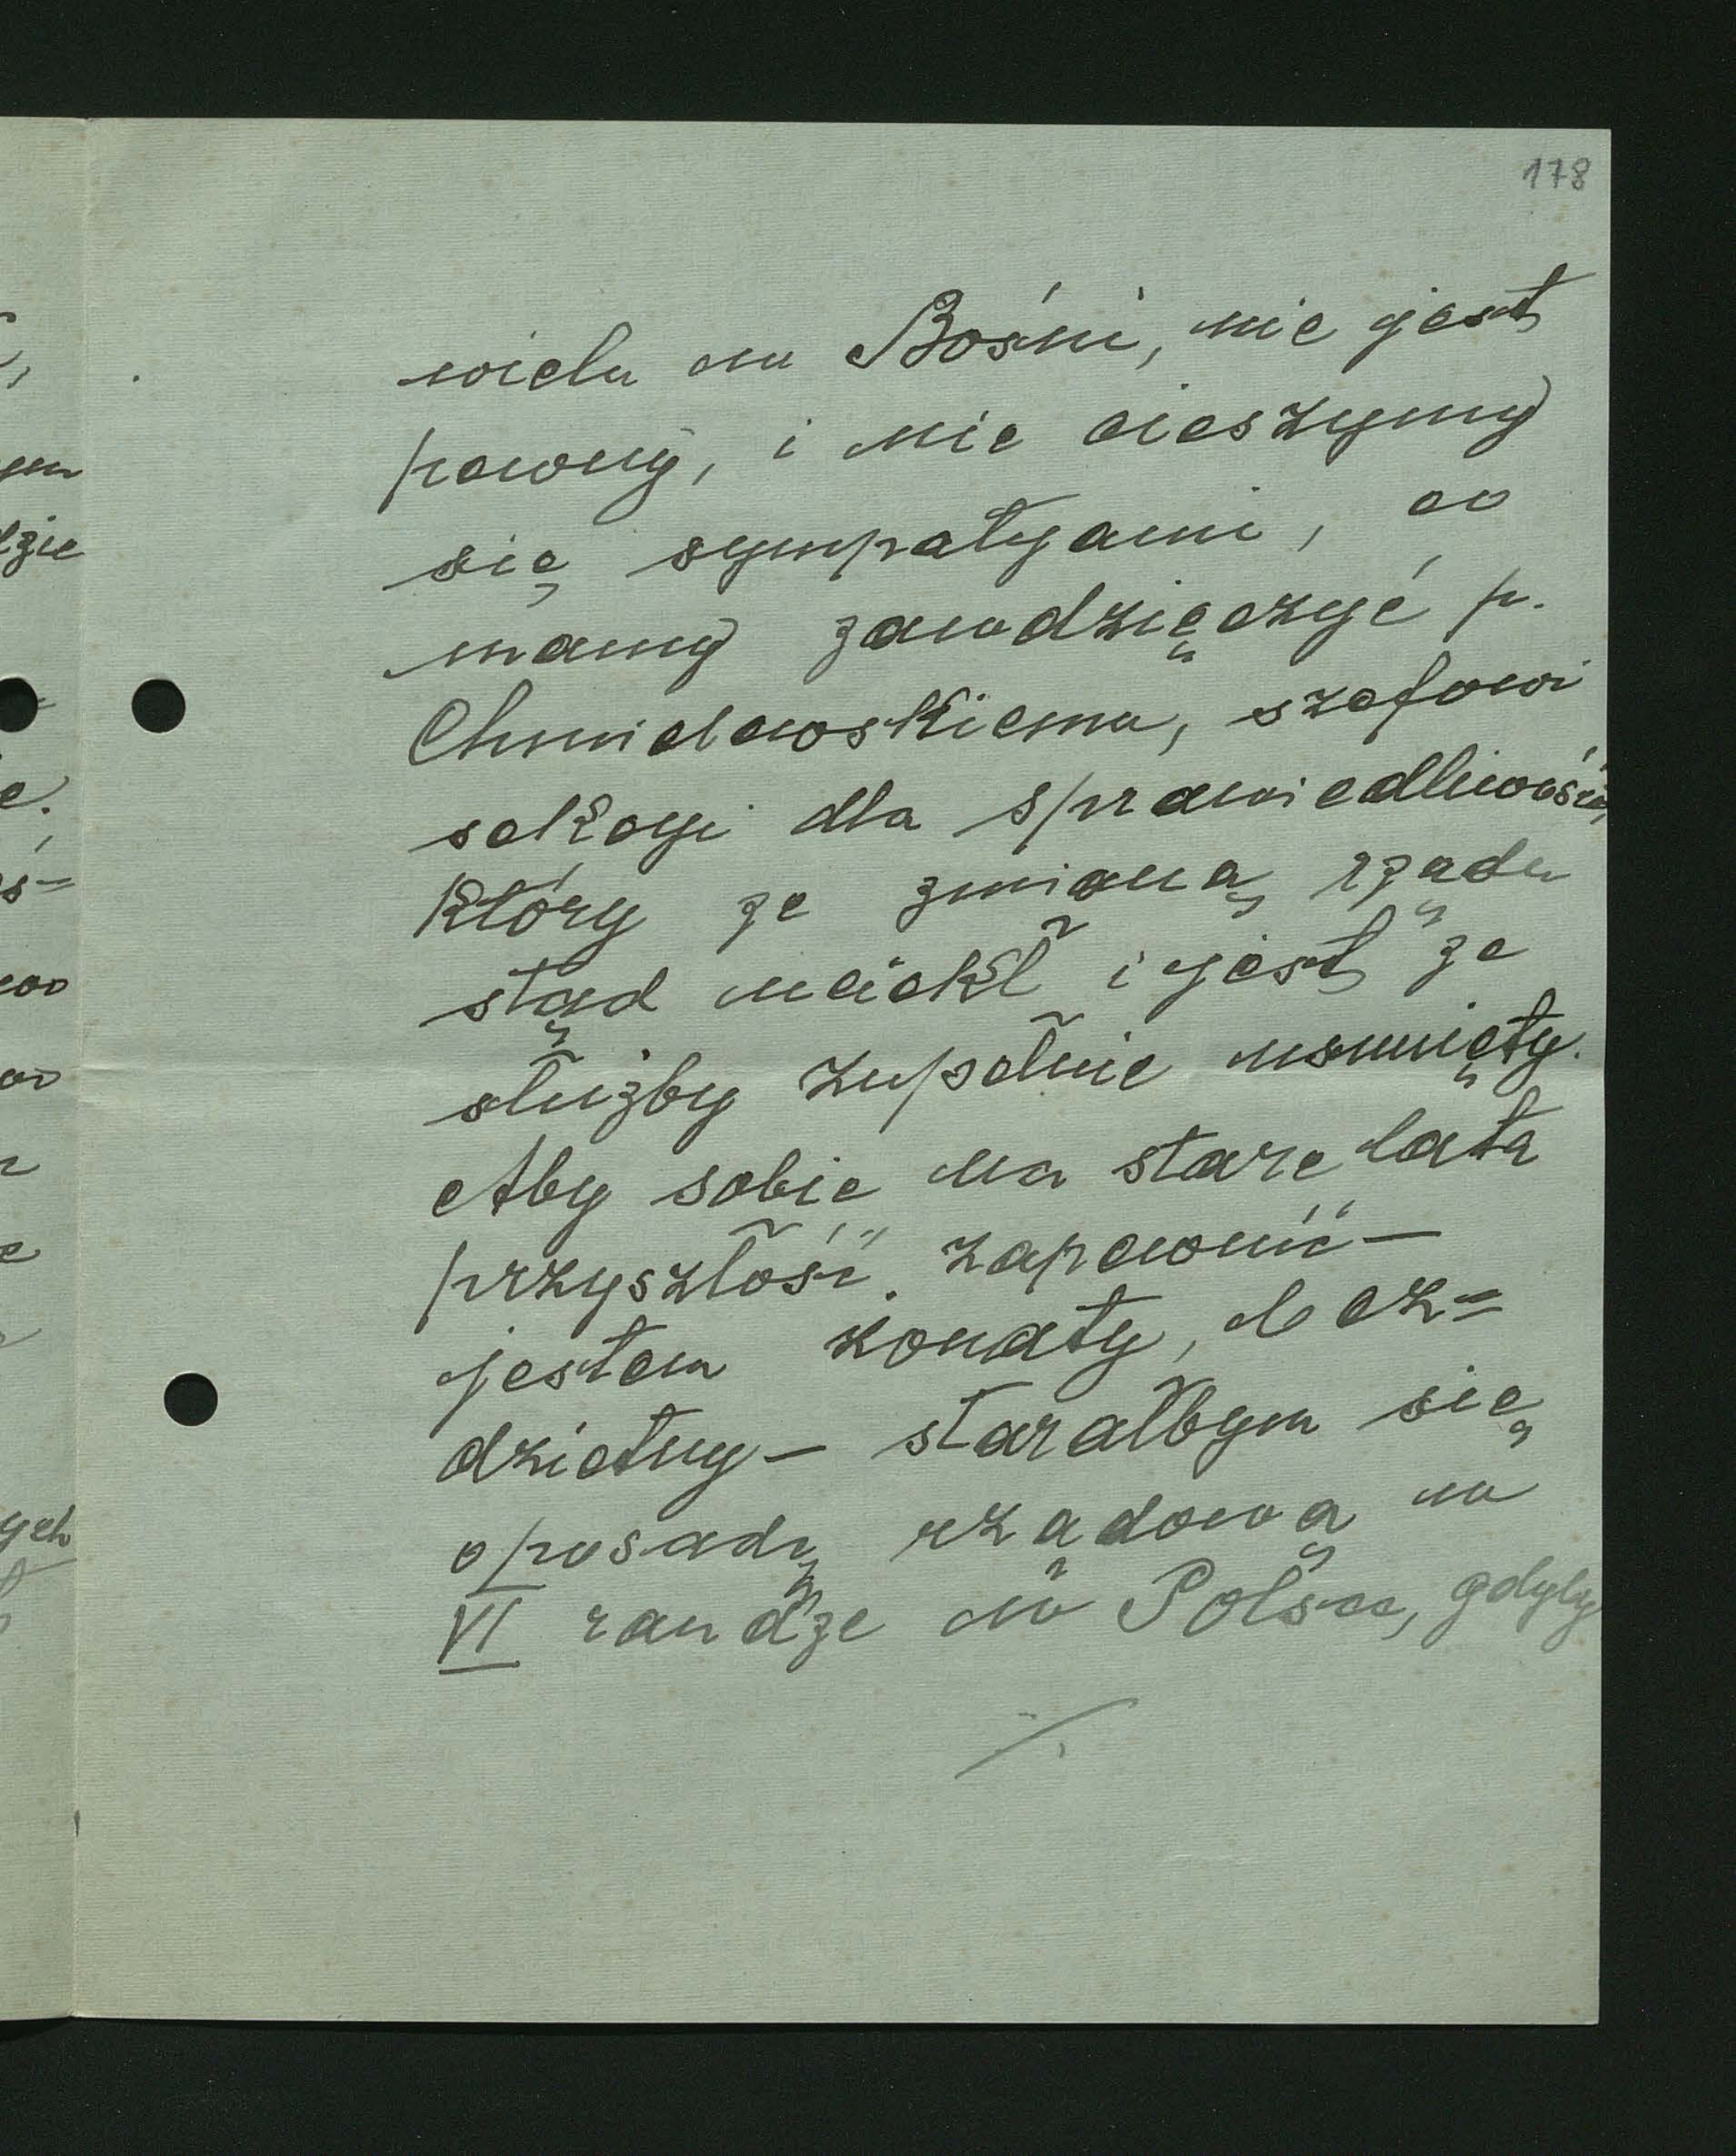 178
wielu w Bośni, nie jest
pewny, i nie cieszymy
się sympatyami, co
mamy zawdzięczyć p.
Chmielewskiemu, szefowi
sekcyi dla sprawiedliwości,
który ze zmianą rządu
stąd uciekł i jest ze
służby zupełnie usunięty.
Aby sobie na stare lata
przyszłość zapewnić –
jestem żonaty, bez=
dzietny – starałbym się
o posadę rządową w
VI randze w Polsce, gdyby
./.